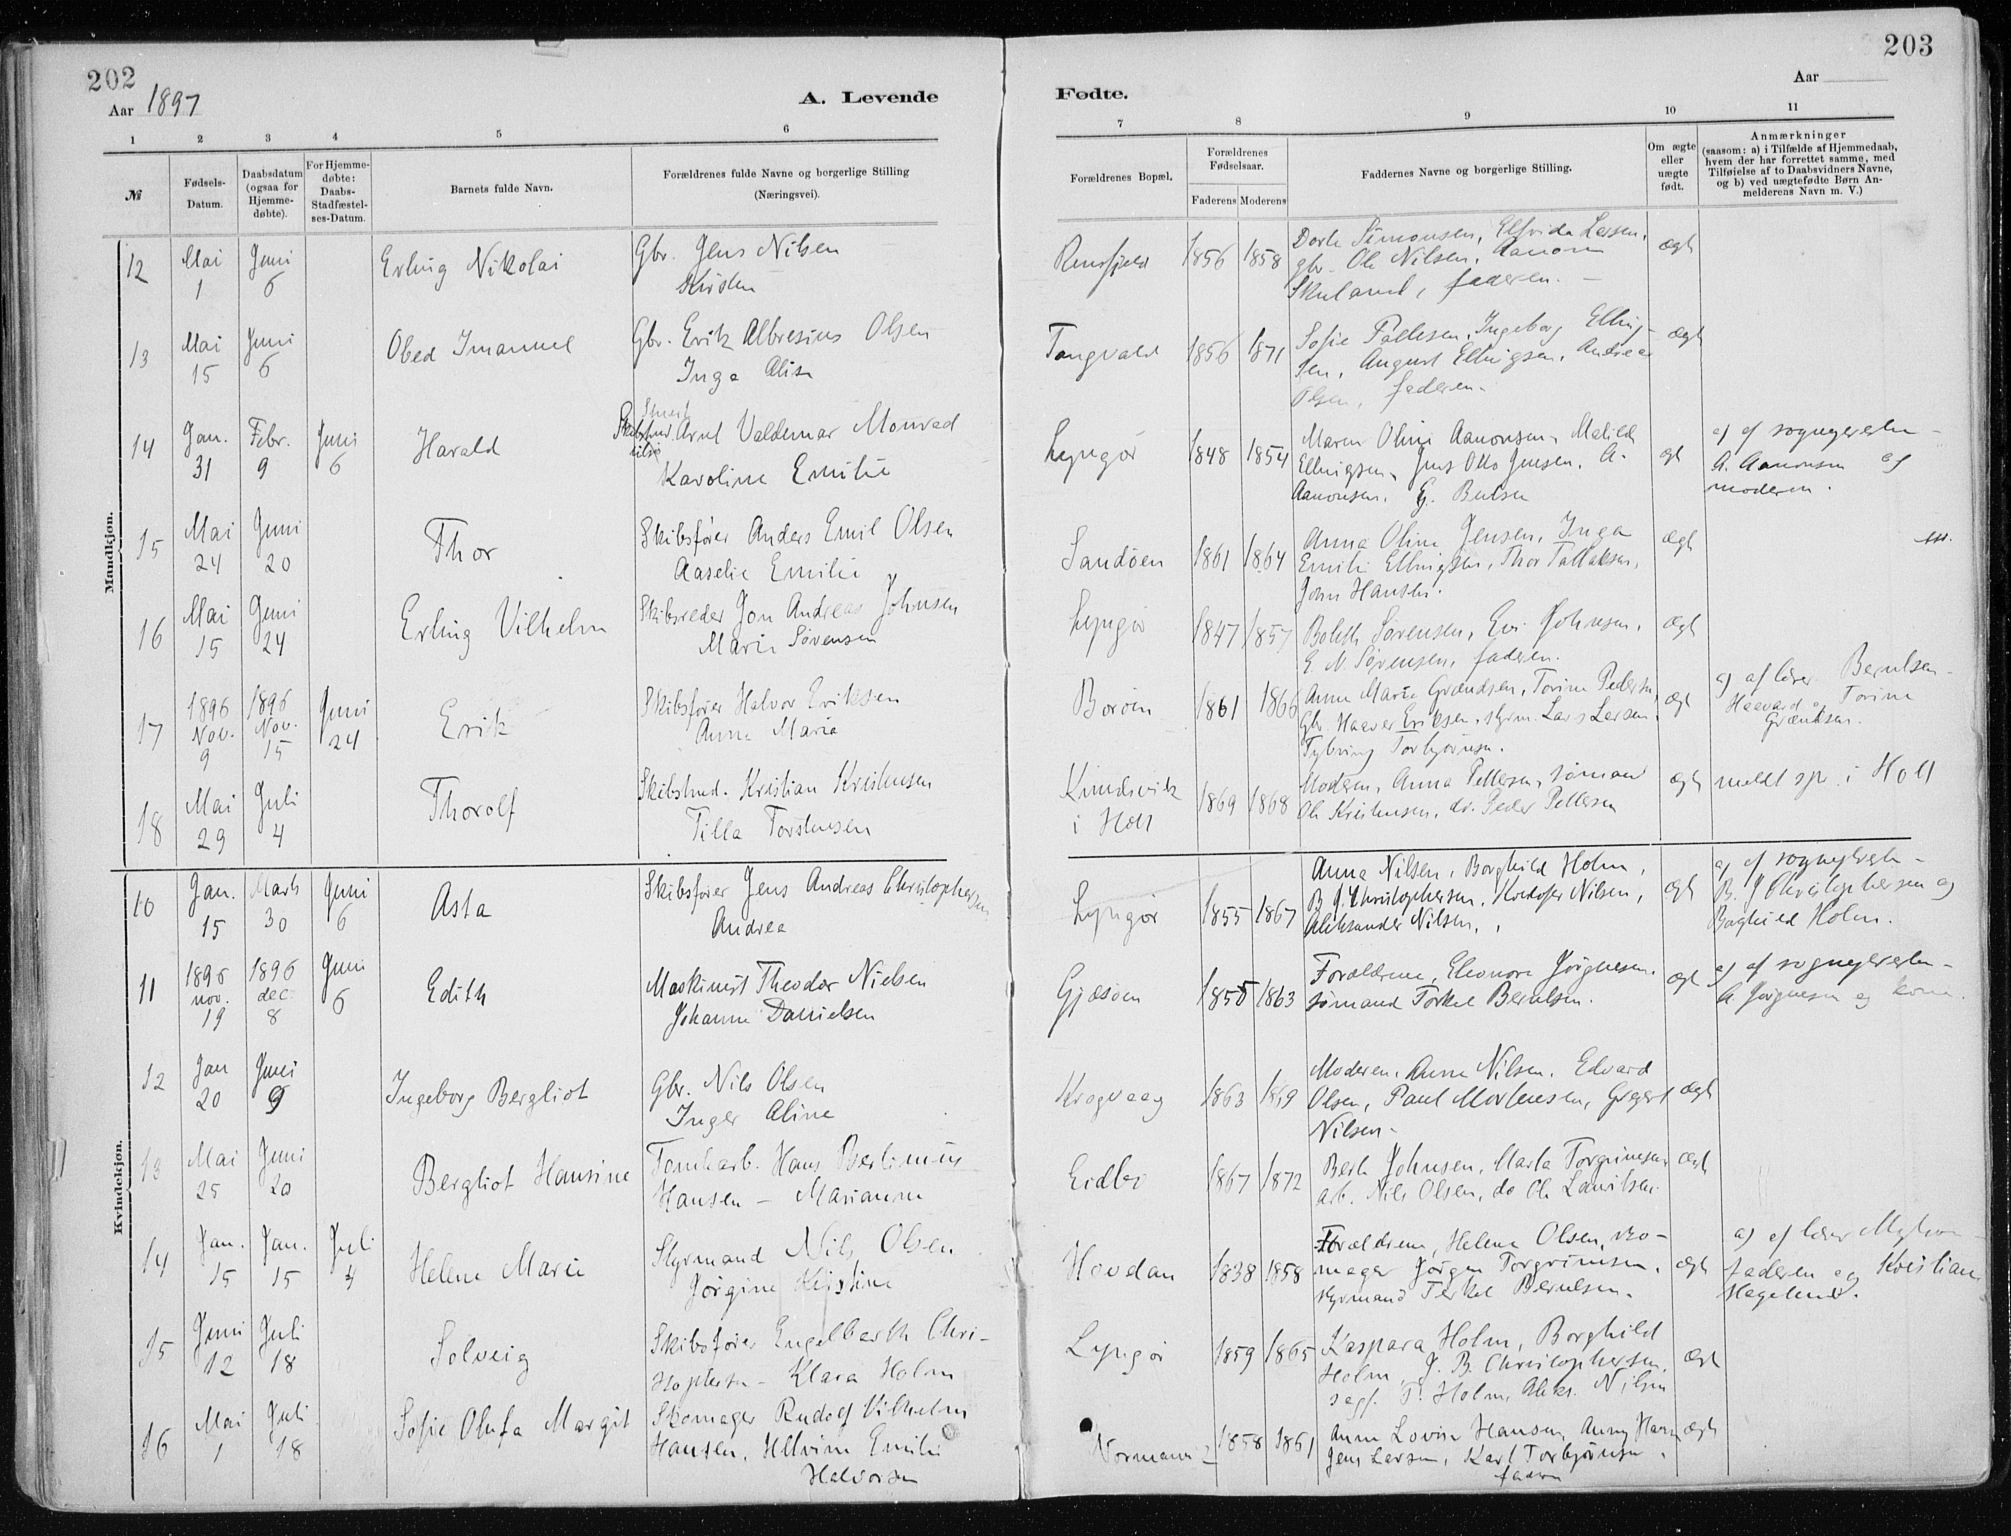 202
Aar 1897
A. Levende
1 2 3 4 5 6
№
Fødsels-
Datum.
Daabsdatum
(ogsaa for
Hjemme-
døbte).
For Hjemme-
døbte:
Daabs-
Stadfæstel-
ses-Datum.
Barnets fulde Navn.
Forældrenes fulde Navne og borgerlige Stilling
(Næringsvei).
203
Aar
Fødte.
7 8 9 10 11
Forældrenes Bopæl.
Forældrenes
Fødselsaar.
Faderens Moderens
Faddernes Navne og borgerlige Stilling.
Om ægte
eller
uægte
født.
Anmærkninger
(saasom: a) i Tilfælde af Hjemmedaab,
hvem der har forrettet samme, med
Tilføielse af to Daabsvidners Navne,
og b) ved uægtefødte Børn An-
melderens Navn m. V.)
Mandkjøn.
12 Mai 1 Juni 6 Erling Nikolai
Gbr. Jens Nilsen
Kirsten
1856 1858
Dorte Simonsen, Elfrida Larsen,
gbr. Ole Nilsen, Aanon
faderen. -
ægt
13 Mai 15 Juni 6 Obed Imanuel
Gbr. Erik Albresius Olsen
Inga Alise
Tangvald 1856 1871
Sofie Pallesen, Ingeborg Elling-
sen, August Ellingsen, Andreas
Olsen, faderen.
ægt
14 Jan. 31 Febr. 9 Juni 6 Harald
Arnt Valdemar Monrad
Karoline Emilie
Lyngør 1848 1854
Maren Oline Aanonsen, Matilde
Ellingsen, Jens Otto Jensen, A.
Aanonsen,
ægt
A. Aanonsen og
moderen.
15 Mai 24 Juni 20 Thor
Skibsfører Anders Emil Olsen
Aaselie Emilie
Sandøen 1861 1864
Anna Oline Jensen, Inga
Emilie Ellingsen, Thor Tallaksen,
John Hansen.
ægt
16 Mai 15 Juni 24 Erling Vilhelm
Skibsreder Jon Andreas Johnsen
Marie Sørensen
Lyngør 1847 1857
Bolette Sørensen, Johnsen,
E. N. Sørensen, faderen.
ægt
17 1896 Nov. 9 1896 Nov. 15 Juni 24 Erik
Skibsfører Halvor Eriksen
Anna Maria
Borøen 1861 1866
Anna Maria Grændsen, Torine Pedersen,
Gbr. Haaver Eriksen, styrm. Lars Larsen,
Torbjørnsen.
ægt
a) af lærer Berulsen-
Haavard og Torine
Grændsen.
18 Mai 29 Juli 4 Thorolf
Skibstmd. Kristian Kristensen
Tilla Torstensen
i Holt 1869 1868
Moderen, Anna Pettersen, sømand
Ole Kristensen, do. Peder Pettersen
ægt
meldt spr. i Holt
Kvindekjøn.
10 Jan. 15 Marts 30 Juni 6 Asta
Skibsfører Jens Andreas Christophersen
Andrea
Lyngør 1855 1867
Anna Nilsen, Borghild Holm,
B. J. Christophersen, Kristofer Nilsen,
Aleksander Nilsen,
ægt
B. J. Christophersen og
Borghild Holm.
11 1896 nov. 19 1896 dec. 8 Juni 6 Edith
Maskinist Theodor Nielsen
Johanne Danielsen
Gjæsøen 1855 1863
Forældrene, Eleonora Jørgensen.
sømand Torkel Berulsen.
ægt
A. Jørgensen og kone.
12 Jan 20 Juni 9 Ingeborg Bergliot
Gbr. Nils Olsen
Inger Aline
Krogvaag 1863 1869
Moderen, Anna Nilsen, Edvard
Olsen, Paul Mortensen, Gregert
Nilsen-
ægt
13 Mai 25 Juni 20 Bergliot Hansine
Tomtarb. Hans Bertinius
Hansen - Marianne
Eidbo 1867 1872
Berte Johnsen, Marta Torgrimsen
arb. Nils Olsen, do Ole Lauritsen
ægt
14 Jan. 15 Jan. 15 Juli 4 Helene Marie
Styrmand Nils Olsen
Jørgine Kristine
Hovdan 1838 1858
Forældrene, Helene Olsen, sko-
mager Jørgen Torgrimsen,
styrmand Terkel Berulsen.
ægt
faderen og Kristian
Hagelund.
15 Juni 12 Juli 18 Solveig
Skibsfører Engelbarth Chri-
stophersen - Klara Holm
Lyngør 1859 1865
Kaspara Holm, Borghild
Holm, J. B. Christophersen,
T. Holm, Aleks. Nilsen
ægt
16 Mai 1 Juli 18 Sofie Olufa Margit
Skomager Rudolf Vilhelm
Hansen, Helvine Emilie
Halvorsen
1858 1861
Anne Lovise Hansen, Anny Hansen
Jens Larsen, Karl Torbjørnsen,
faderen
ægt